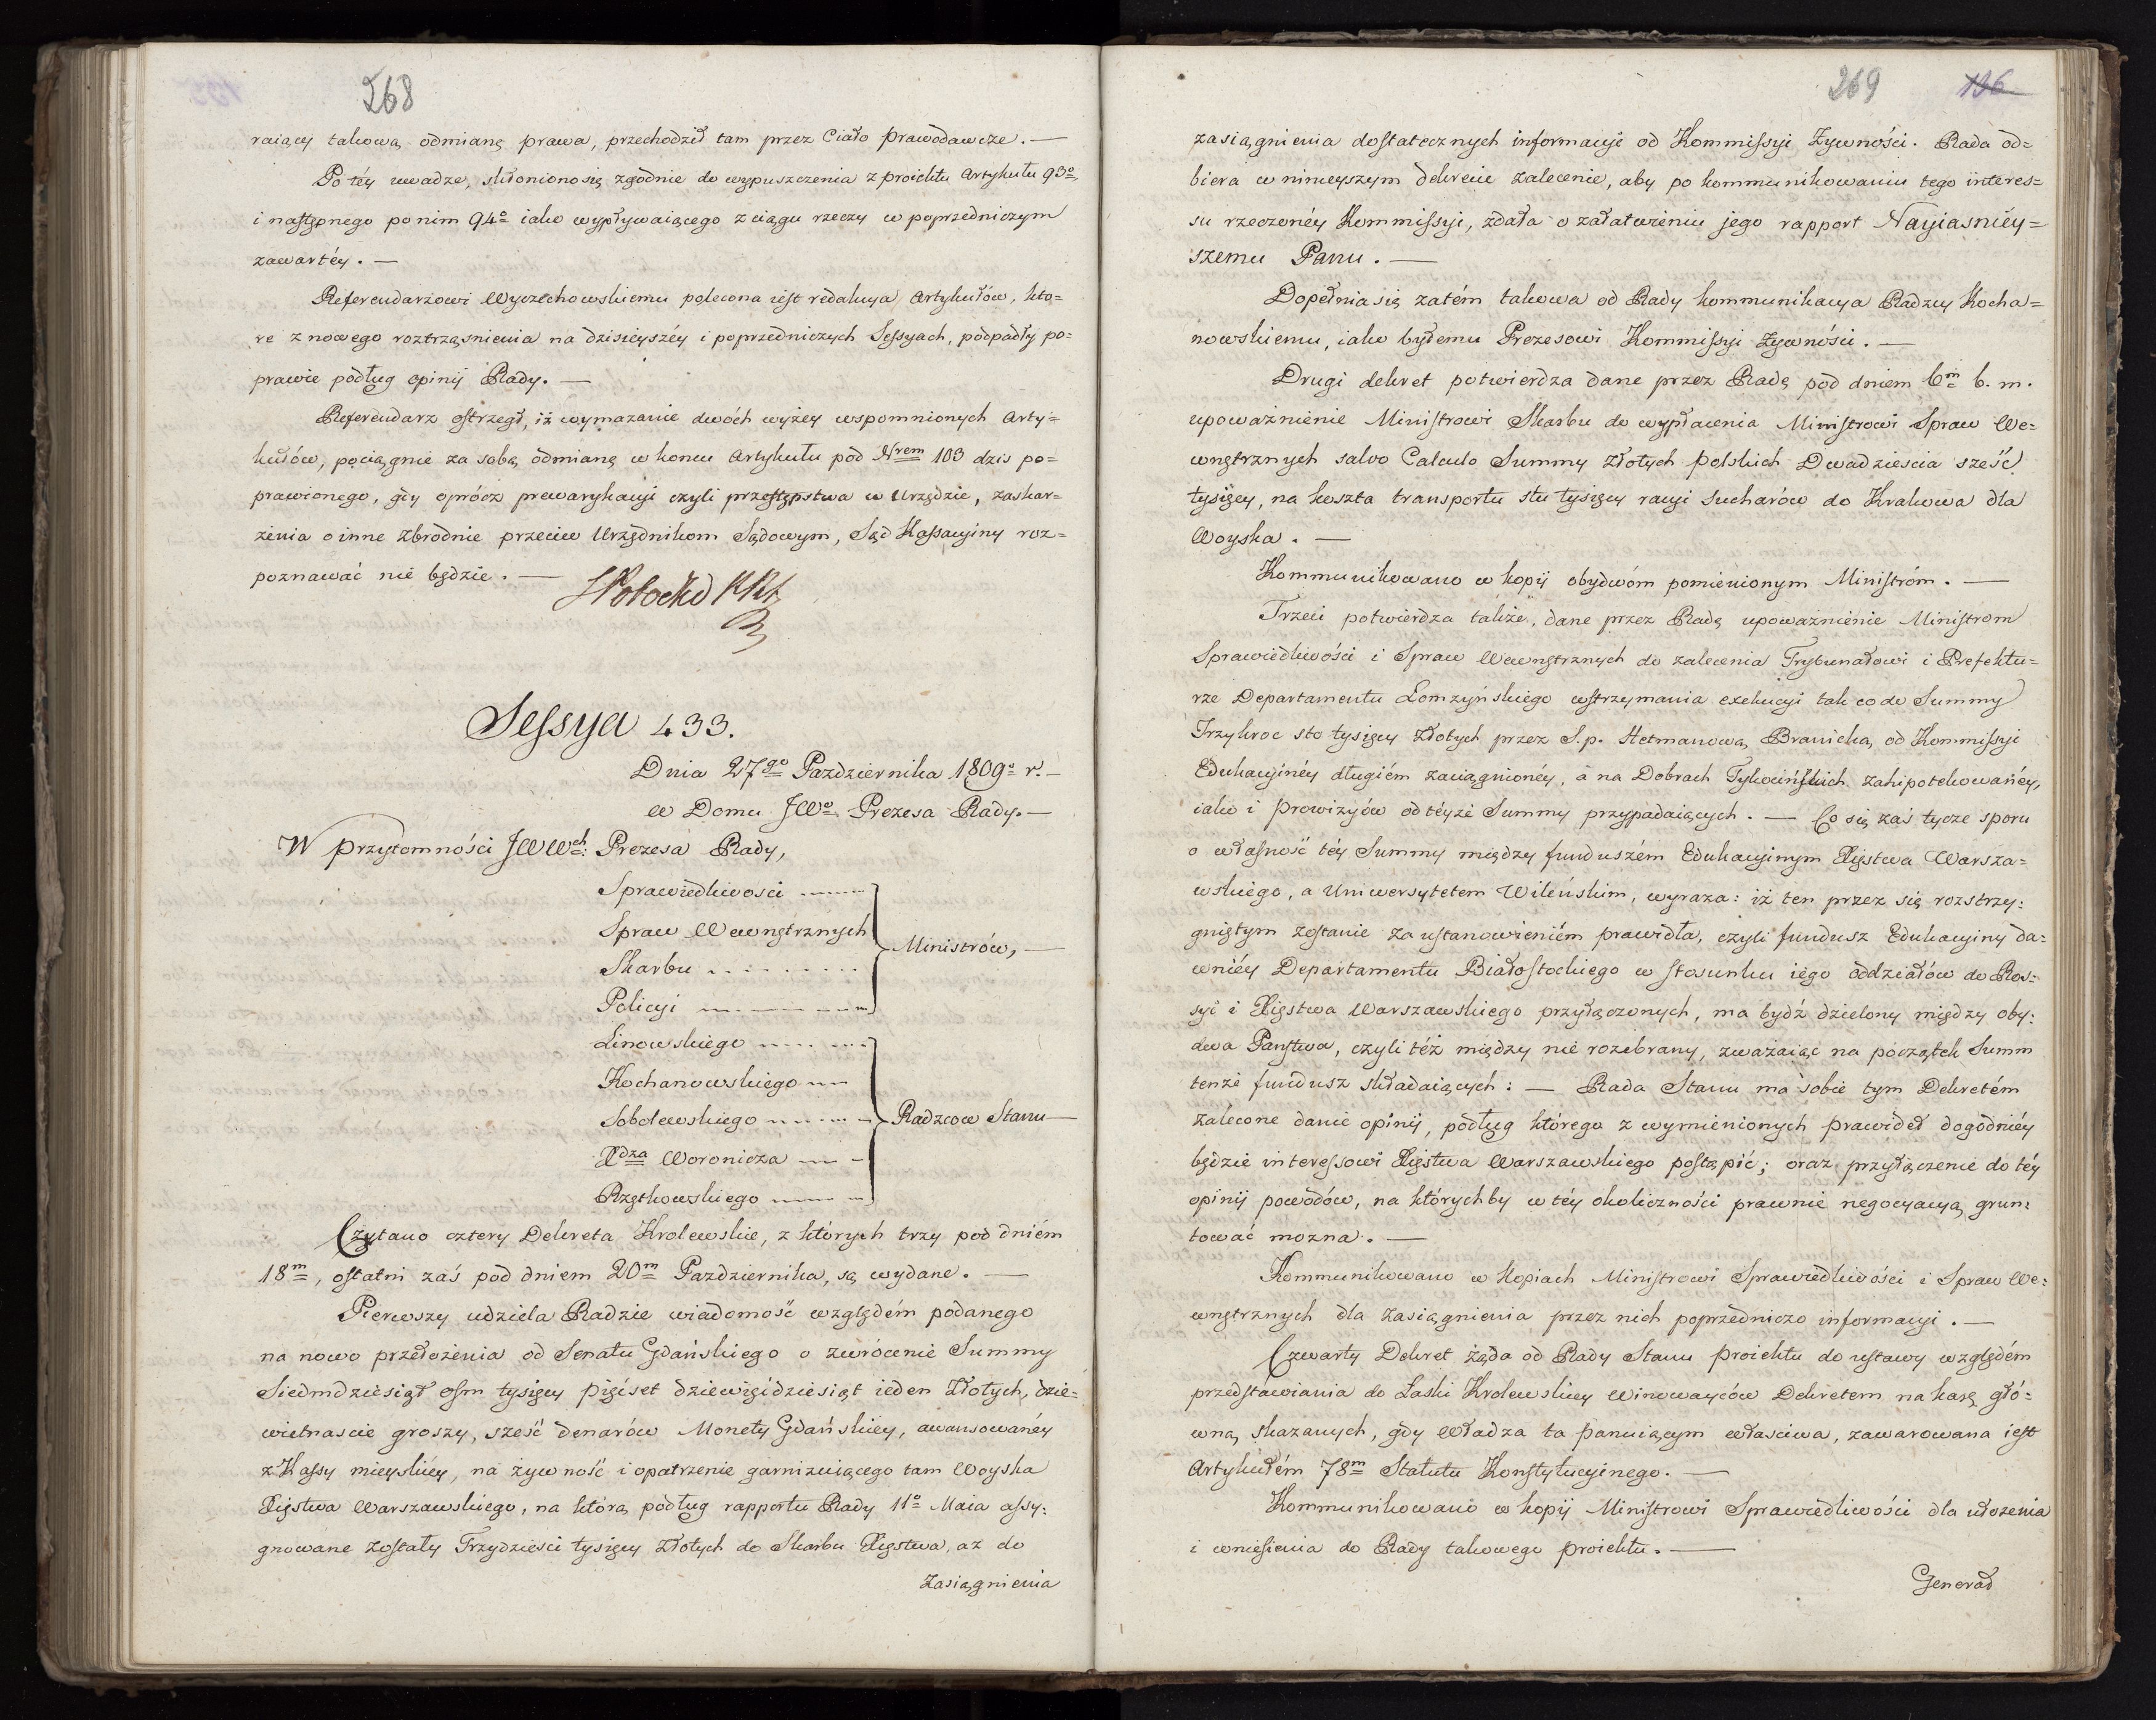 268
raiący takową odmianę prawa, przechodził tam przez Ciało prawodawcze. —
Po téy uwadze, skłoniono się zgodnie do wypuszczenia z proiektu Artykułu 93o
i następnego po nim 94o iako wypływaiącego z ciągu rzeczy w poprzedniczym
zawartéy. —
Referendarzowi Wyczechowskiemu polecona iest redakcya Artykułów, któ=
re z nowego roztrząsnienia na dzisieyszéy i poprzedniczych Sessyach, podpadły po=
prawie podług opinij Rady. —
Referendarz ostrzegł, iż wymazanie dwóch wyżey wspomnionych Arty=
kułów, pociągnie za sobą odmianę w końcu Artykułu pod Nrem 103 dzis po=
prawionego, gdy oprócz prewarykacyi czyli przestępstwa w Urzędzie, zaskar=
żenia o inne zbrodnie przeciw Urzędnikom Sądowym, Sąd Kassacyiny roz=
poznawać nie będzie. —
Sessya 433.
Dnia 27go Pazdziernika 1809o r. —
w Domu JWo Prezesa Rady. —
W przytomności JWWch: Prezesa Rady,
Sprawiedliwosci
Spraw Wewnętrznych
Ministrów, —
Skarbu
Policyi
Linowskiego
Kochanowskiego
Sobolewskiego
Radzcow Stanu —
Xdza Woronicza
Rzętkowskiego
Czytano cztery Dekreta Krolewskie, z których trzy pod dniém
18m, ostatni zaś pod dniem 20m Pazdziernika, są wydane. —
Pierwszy udziela Radzie wiadomość względém podanego
na nowo przełożenia od Senatu Gdańskiego o zwrócenie Summy
Siedmdziesiąt osm tysięcy pięćset dziewięćdziesiąt ieden Złotych, dzie=
wietnascie groszy, sześć denarów Monety Gdańskiey, awansowanéy
z Kassy mieyskiéy, na żywność i opatrzenie garnizuiącego tam Woyska
Xięstwa Warszawskiego, na którą podług rapportu Rady 11o Maia assy:
gnowane zostały Trzydzieści tysięcy Złotych do Skarbu Xięstwa, aż do
Zasiągnienia
269 136
zasiągnienia dostatecznych informacyi od Kommissyi Żywności. Rada od=
biera w ninieyszym dekrecie zalecenie, aby po kommunikowaniu tego interes=
su rzeczonéy Kommissyi, zdała o załatwieniu jego rapport Nayiasniéy=
szemu Panu. —
Dopełnia się zatém takowa od Rady kommunikacya Radzcy Kocha=
nowskiemu, iako byłemu Prezesowi Kommissyi żywności. —
Drugi dekret potwierdza dane przez Radę pod dniem 6m b. m.
upoważnienie Ministrowi Skarbu do wypłacenia Ministrowi Spraw We=
wnętrznych salvo Calculo Summy złotych polskich Dwadziescia sześć
tysięcy, na koszta transportu stu tysięcy racyi Sucharów do Krakowa dla
Woyska. —
Kommunikowano w kopij obydwóm pomienionym Ministróm. —
Trzeci potwierdza także, dane przez Radę upoważnienie Ministrom
Sprawiedliwości i Spraw Wewnętrznych do zalecenia Trybunałowi i Prefektu=
rze Departamentu Łomżyńskiego wstrzymania exekucyi tak co do Summy
Trzykroc sto tysięcy Złotych przez S.p. Hetmanową Branicką od Kommissyi
Edukacyinéy długiém zaciągnionéy, á na Dobrach Tykocińskich zahipotekowanéy,
iako i prowizyów od téyże Summy przypadaiących. — Co się zaś tycze sporu
o własność téy Summy między funduszém Edukacyinym Xięstwa Warsza=
wskiego, a Uniwersytetem Wileńskim, wyraża: iż ten przez się rozstrzy:
gniętym zostanie za ustanowieniém prawidła, czyli fundusz Edukacyiny da=
wniéy Departamentu Białostockiego w stosunku iego oddziałów do Ros=
syi i Xięstwa Warszawskiego przyłączonych, ma bydź dzielony między oby:
dwa Państwa, czyli też między nie rozebrany, zważaiąc na początek Summ
tenże fundusz składaiących: — Rada Stanu ma sobie tym Dekretém
zalécone danie opinij, podług którego z wymienionych prawideł dogodniéy
będzie interessowi Xięstwa Warszawskiego postąpić; oraz przyłączenie do téy
opinij powodów, na którychby w téy okoliczności prawnie negocyacyą grun:
tować można. —
Kommunikowano w Kopiach Ministrowi Sprawiedliwości i Spraw We:
wnętrznych dla zasiągnienia przez nich poprzedniczo informacyi. —
Czwarty Dekret żąda od Rady Stanu proiektu do ustawy względém
przedstawiania do Łaski Krolewskiey Winowayców Dekretem na karę głó=
wną skazanych, gdy Władza ta panuiącym własciwa, zawarowana iest
Artykułém 78m Statutu Konstytucyinego. —
Kommunikowano w kopij Ministrowi Sprawiedliwości dla ułożenia
i wniesienia do Rady takowego proiektu. —
Generał